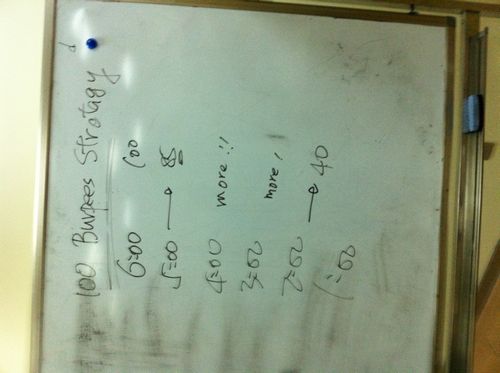 100 Burpees Stratagy
6:00 100
5:00 → 85
4:00 more!!
3:00 more!
2:00 → 40
1:00